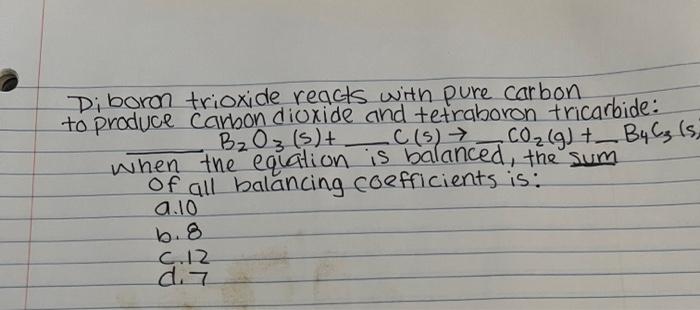 Diboron trioxide reacts with pure carbon
to produce carbon dioxide and tetraboron tricarbide:
____ B₂O₃ (s) + __ C (s) → __ CO₂ (g) + __ B₄C₃ (s)
when the equation is balanced, the sum
of all balancing coefficients is:
a. 10
b. 8
c. 12
d. 7